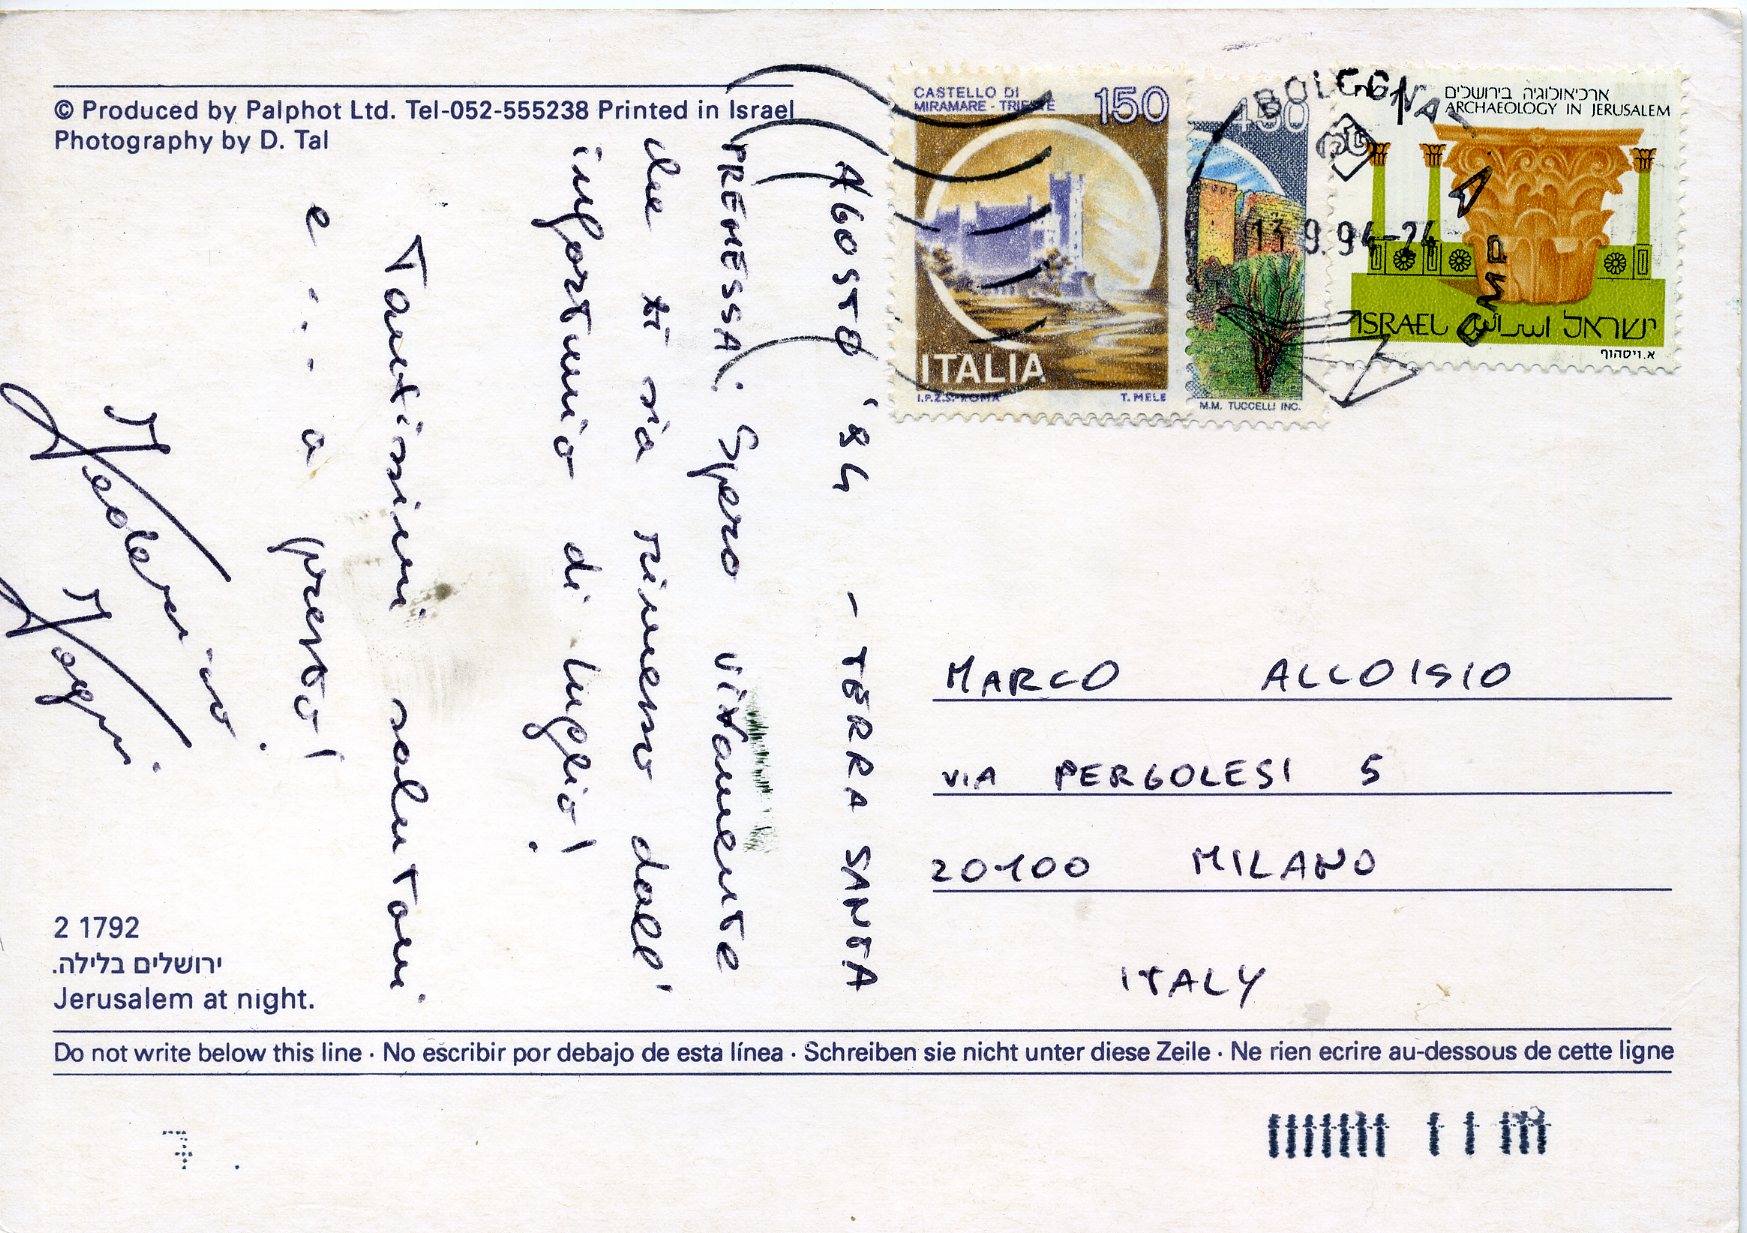 © Produced by Palphot Ltd. Tel-052-555238 Printed in Israel
Photography by D. Tal
AGOSTO '94 - TERRA SANTA
PREMESSA: Spero vivamente
che ti sia rimesso dall'
infortunio di luglio!
Tantissimi salutoni
e . . . a presto!
Federico
Poggi
CASTELLO DI
MIRAMARE - TRIESTE
150
ITALIA
I.P.Z.S. ROMA T. MELE
450
M.M. TUCCELLI INC.
BOLOGNA
CMP
13.9.94-24
ארכיאולוגיה בירושלים
ARCHAEOLOGY IN JERUSALEM
ISRAEL اسرائيل ישראל
א. ויסהוף
MARCO ALLOISIO
VIA PERGOLESI 5
20100 MILANO
ITALY
2 1792
ירושלים בלילה.
Jerusalem at night.
Do not write below this line · No escribir por debajo de esta línea · Schreiben sie nicht unter diese Zeile · Ne rien ecrire au-dessous de cette ligne